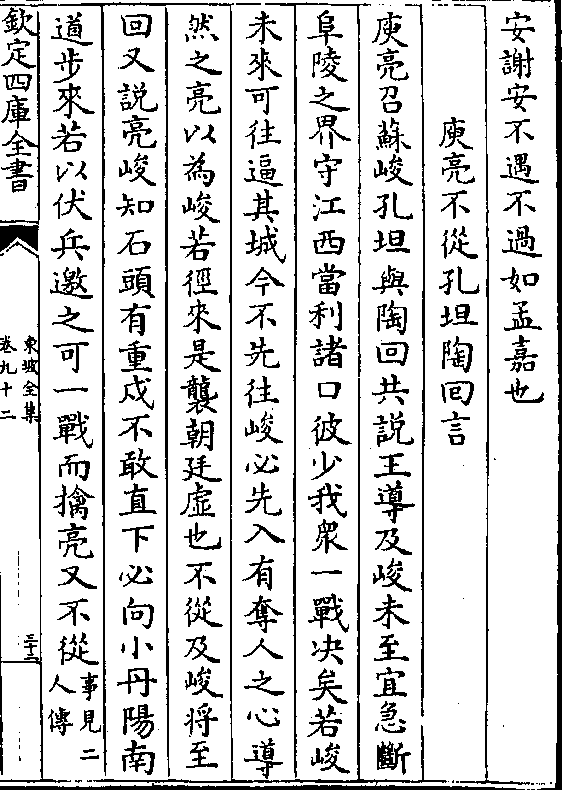 安謝安不遇不過如孟嘉也
庾亮不從孔坦陶回言
庾亮召蘇峻孔坦與陶回共說王導及峻未至宜急斷
阜陵之界守江西當利諸口彼少我衆一戰决矣若峻
未來可往逼其城今不先往峻必先入有奪人之心導
然之亮以為峻若徑來是襲朝廷虛也不從及峻将至
回又說亮峻知石頭有重戍不敢直下必向小丹陽南
道步來若以伏兵邀之可一戰而擒亮又不從事見二
人傳
欽定四庫全書
東坡全集
卷九十二
三十二